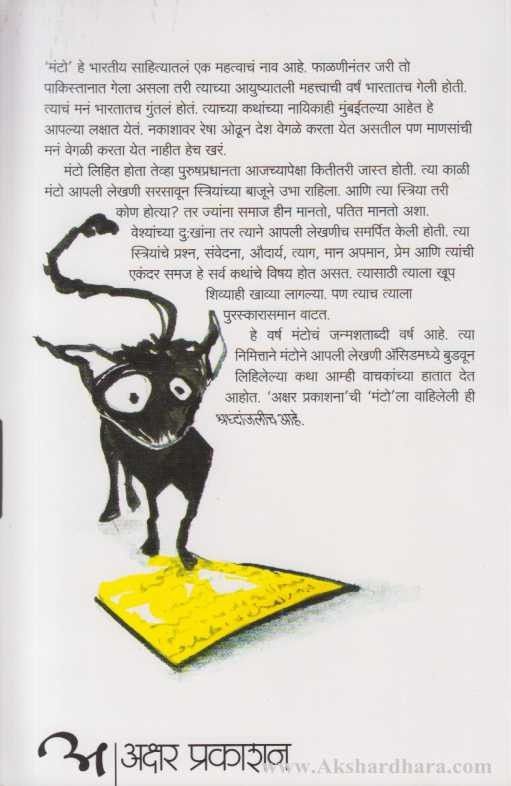 'मंटो' हे भारतीय साहित्यातलं एक महत्वाचं नाव आहे. फाळणीनंतर जरी तो
पाकिस्तानात गेला असला तरी त्याच्या आयुष्यातली महत्त्वाची वर्षं भारतातच गेली होती.
त्याचं मनं भारतातच गुंतलं होतं. त्याच्या कथांच्या नायिकाही मुंबईतल्या आहेत हे
आपल्या लक्षात येतं. नकाशावर रेषा ओढून देश वेगळे करता येत असतील पण माणसांची
मनं वेगळी करता येत नाहीत हेच खरं.
मंटो लिहित होता तेव्हा पुरुषप्रधानता आजच्यापेक्षा कितीतरी जास्त होती. त्या काळी
मंटो आपली लेखणी सरसावून स्त्रियांच्या बाजूने उभा राहिला. आणि त्या स्त्रिया तरी
कोण होत्या? तर ज्यांना समाज हीन मानतो, पतित मानतो अशा.
वेश्यांच्या दु:खांना तर त्याने आपली लेखणीच समर्पित केली होती. त्या
स्त्रियांचे प्रश्न, संवेदना, औदार्य, त्याग, मान अपमान, प्रेम आणि त्यांची
एकंदर समज हे सर्व कथांचे विषय होत असत. त्यासाठी त्याला खूप
शिव्याही खाव्या लागल्या. पण त्याच त्याला
पुरस्कारासमान वाटत.
हे वर्ष मंटोचं जन्मशताब्दी वर्ष आहे. त्या
निमित्ताने मंटोने आपली लेखणी ॲसिडमध्ये बुडवून
लिहिलेल्या कथा आम्ही वाचकांच्या हातात देत
आहोत. 'अक्षर प्रकाशना'ची 'मंटो'ला वाहिलेली ही
श्रध्दांजलीच आहे.
अ अक्षर प्रकाशन
www.Akshardhara.com